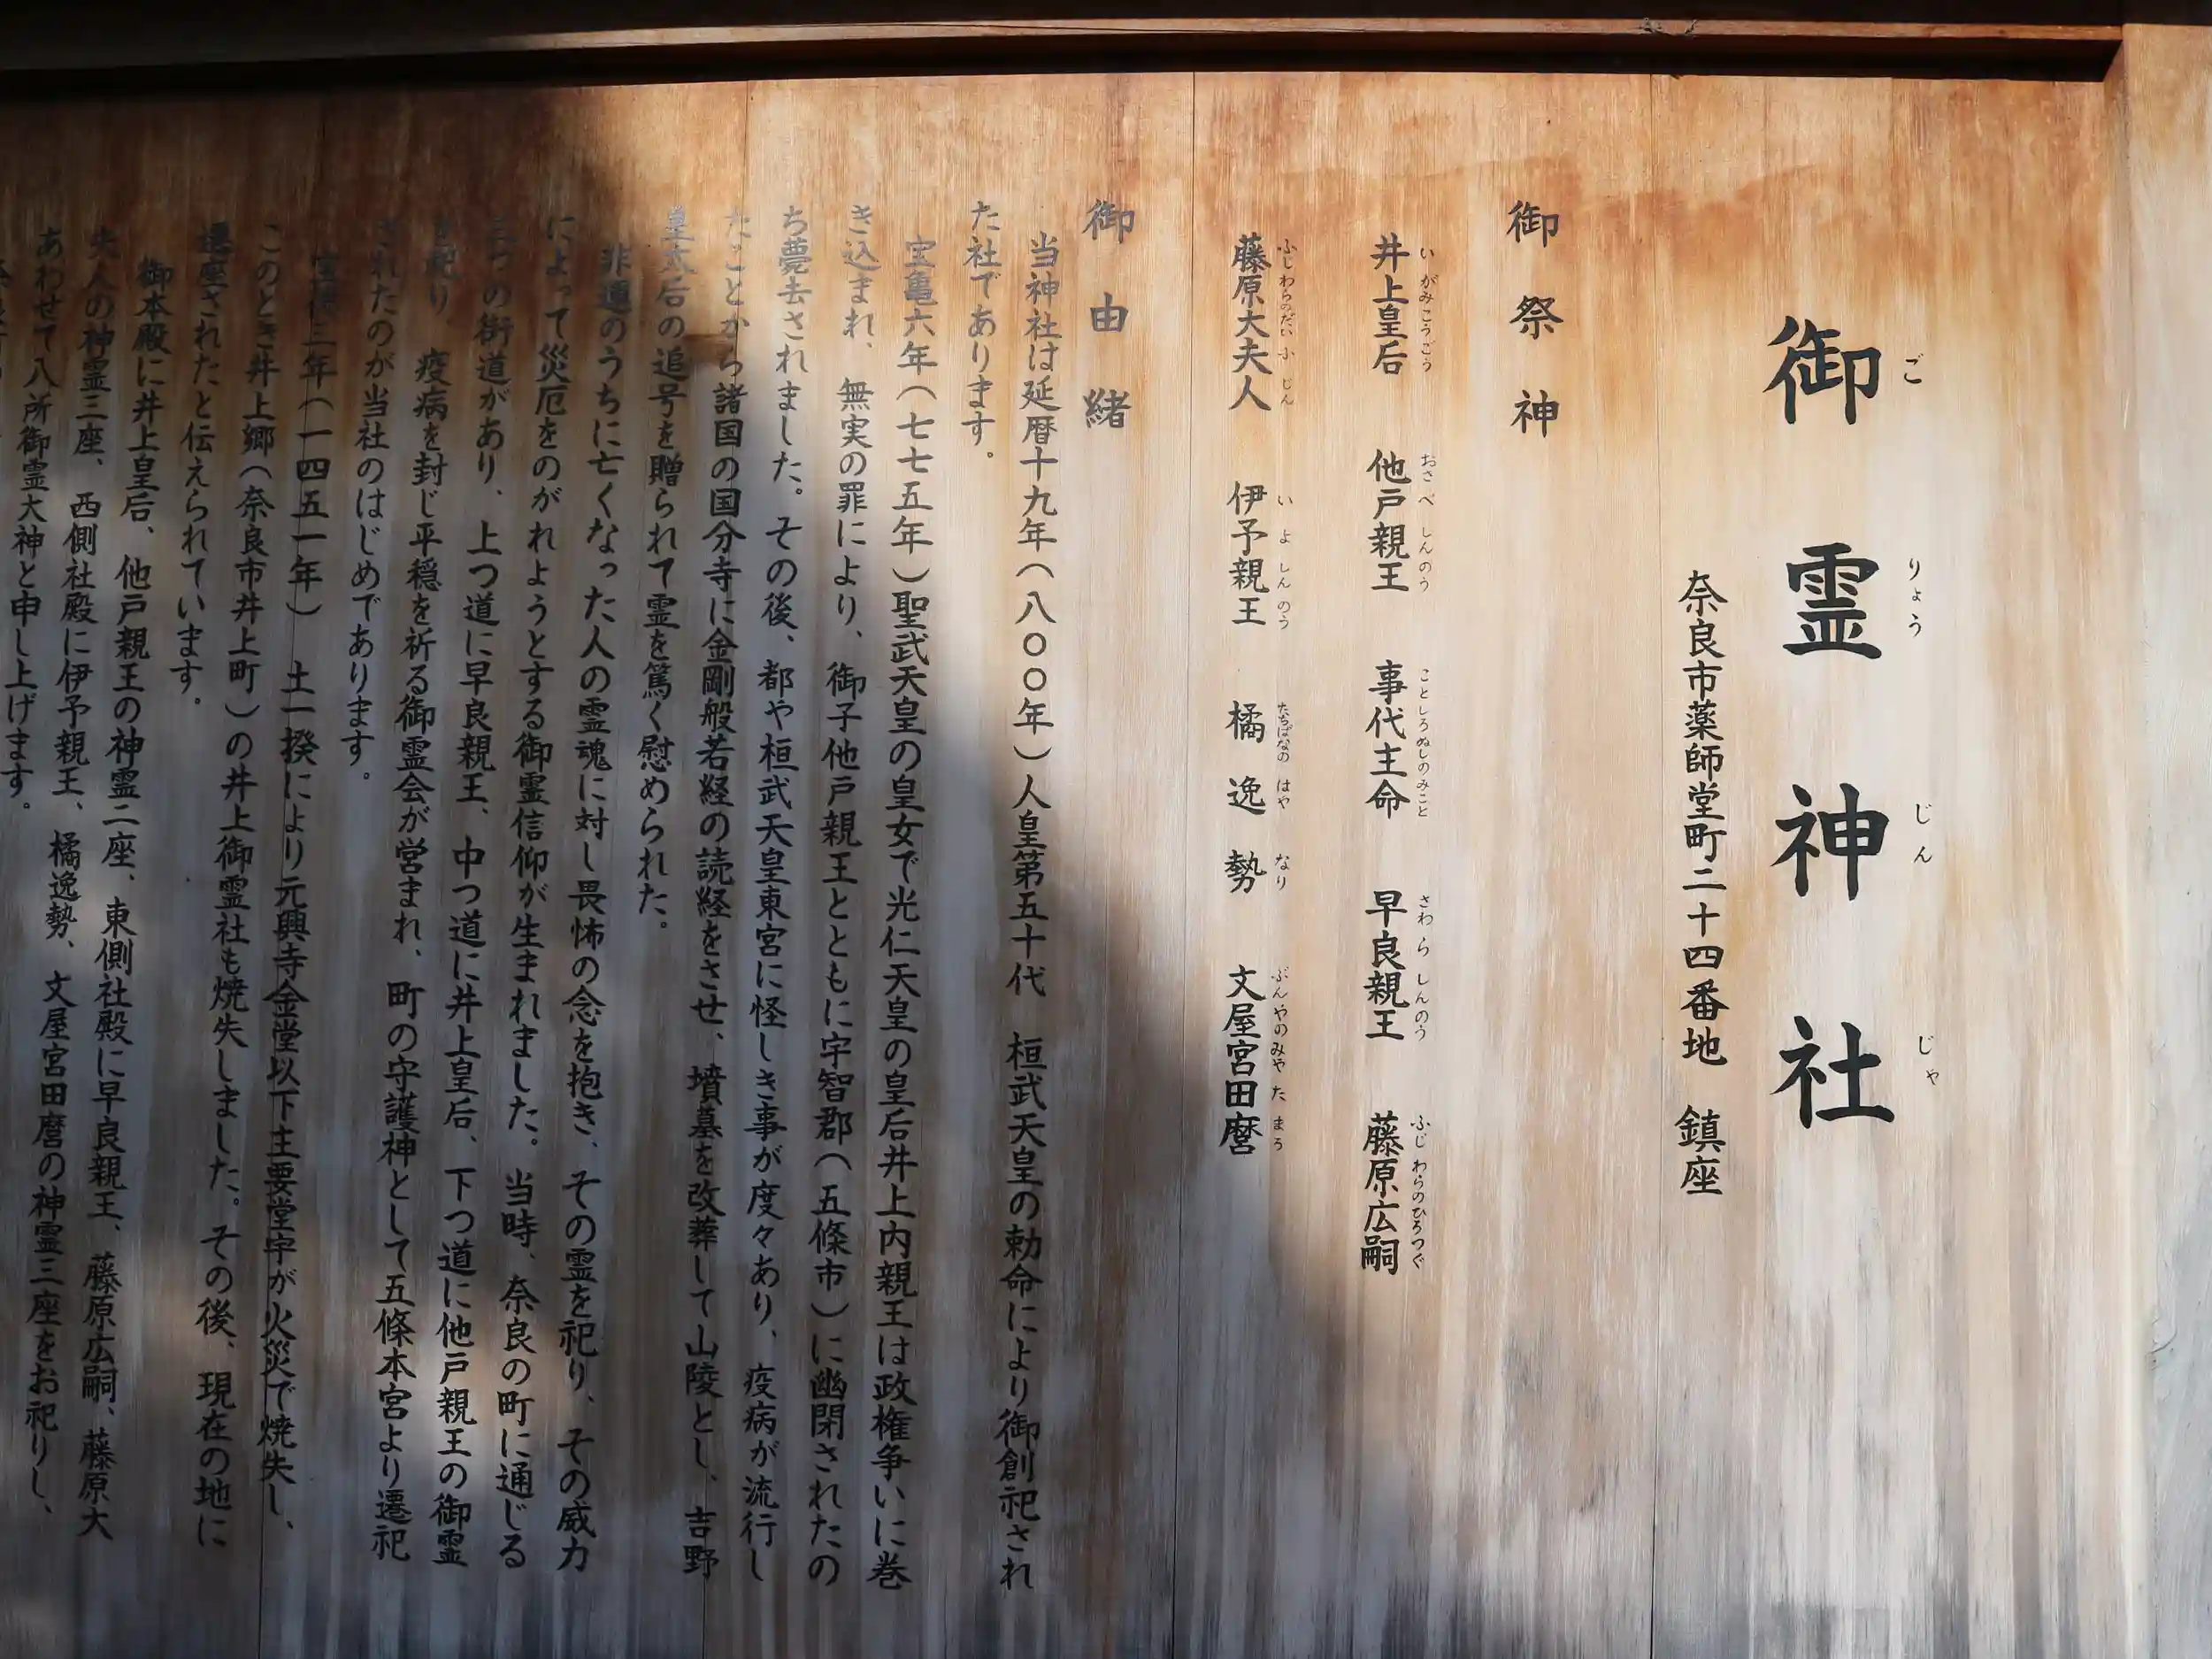 御霊神社
ごりょうじんじゃ
奈良市薬師堂町二十四番地　鎮座
御祭神
井上皇后　他戸親王　事代主命　早良親王　藤原広嗣
いがみこうごう　おさべしんのう　ことしろぬしのみこと　さわらしんのう　ふじわらのひろつぐ
藤原大夫人　伊予親王　橘逸勢　文屋宮田麿
ふじわらのだいふじん　いよしんのう　たちばなのはやなり　ぶんやのみやたまろ
御由緒
当神社は延暦十九年（八〇〇年）人皇第五十代　桓武天皇の勅命により御創祀され
た社であります。
宝亀六年（七七五年）聖武天皇の皇女で光仁天皇の皇后井上内親王は政権争いに巻
き込まれ、無実の罪により、御子他戸親王とともに宇智郡（五條市）に幽閉されたの
ち薨去されました。その後、都や桓武天皇東宮に怪しき事が度々あり、疫病が流行し
たことから諸国の国分寺に金剛般若経の読経をさせ、墳墓を改葬して山陵とし、吉野
皇太后の追号を贈られて霊を篤く慰められた。
非運のうちに亡くなった人の霊魂に対し畏怖の念を抱き、その霊を祀り、その威力
によって災厄をのがれようとする御霊信仰が生まれました。当時、奈良の町に通じる
三つの街道があり、上つ道に早良親王、中つ道に井上皇后、下つ道に他戸親王の御霊
を祀り、疫病を封じ平穏を祈る御霊会が営まれ、町の守護神として五條本宮より遷祀
されたのが当社のはじめであります。
宝徳三年（一四五一年）　土一揆により元興寺金堂以下主要堂宇が火災で焼失し、
このとき井上郷（奈良市井上町）の井上御霊社も焼失しました。その後、現在の地に
遷座されたと伝えられています。
御本殿に井上皇后、他戸親王の神霊二座、東側社殿に早良親王、藤原広嗣、藤原大
夫人の神霊三座、西側社殿に伊予親王、橘逸勢、文屋宮田麿の神霊三座をお祀りし、
あわせて八所御霊大神と申し上げます。